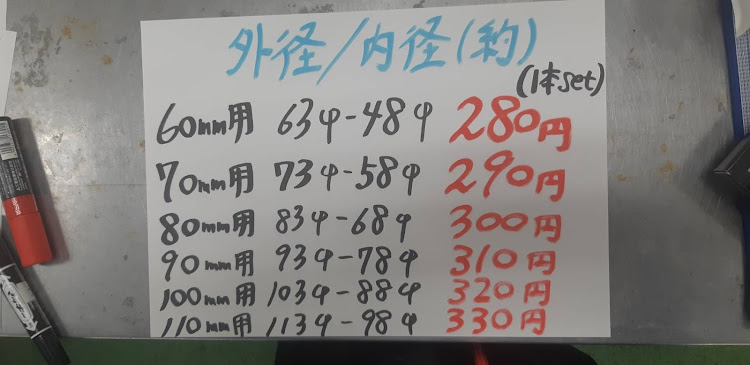 外径/内径(約)
(1本set)
60mm用 63φ-48φ 280円
70mm用 73φ-58φ 290円
80mm用 83φ-68φ 300円
90mm用 93φ-78φ 310円
100mm用 103φ-88φ 320円
110mm用 113φ-98φ 330円